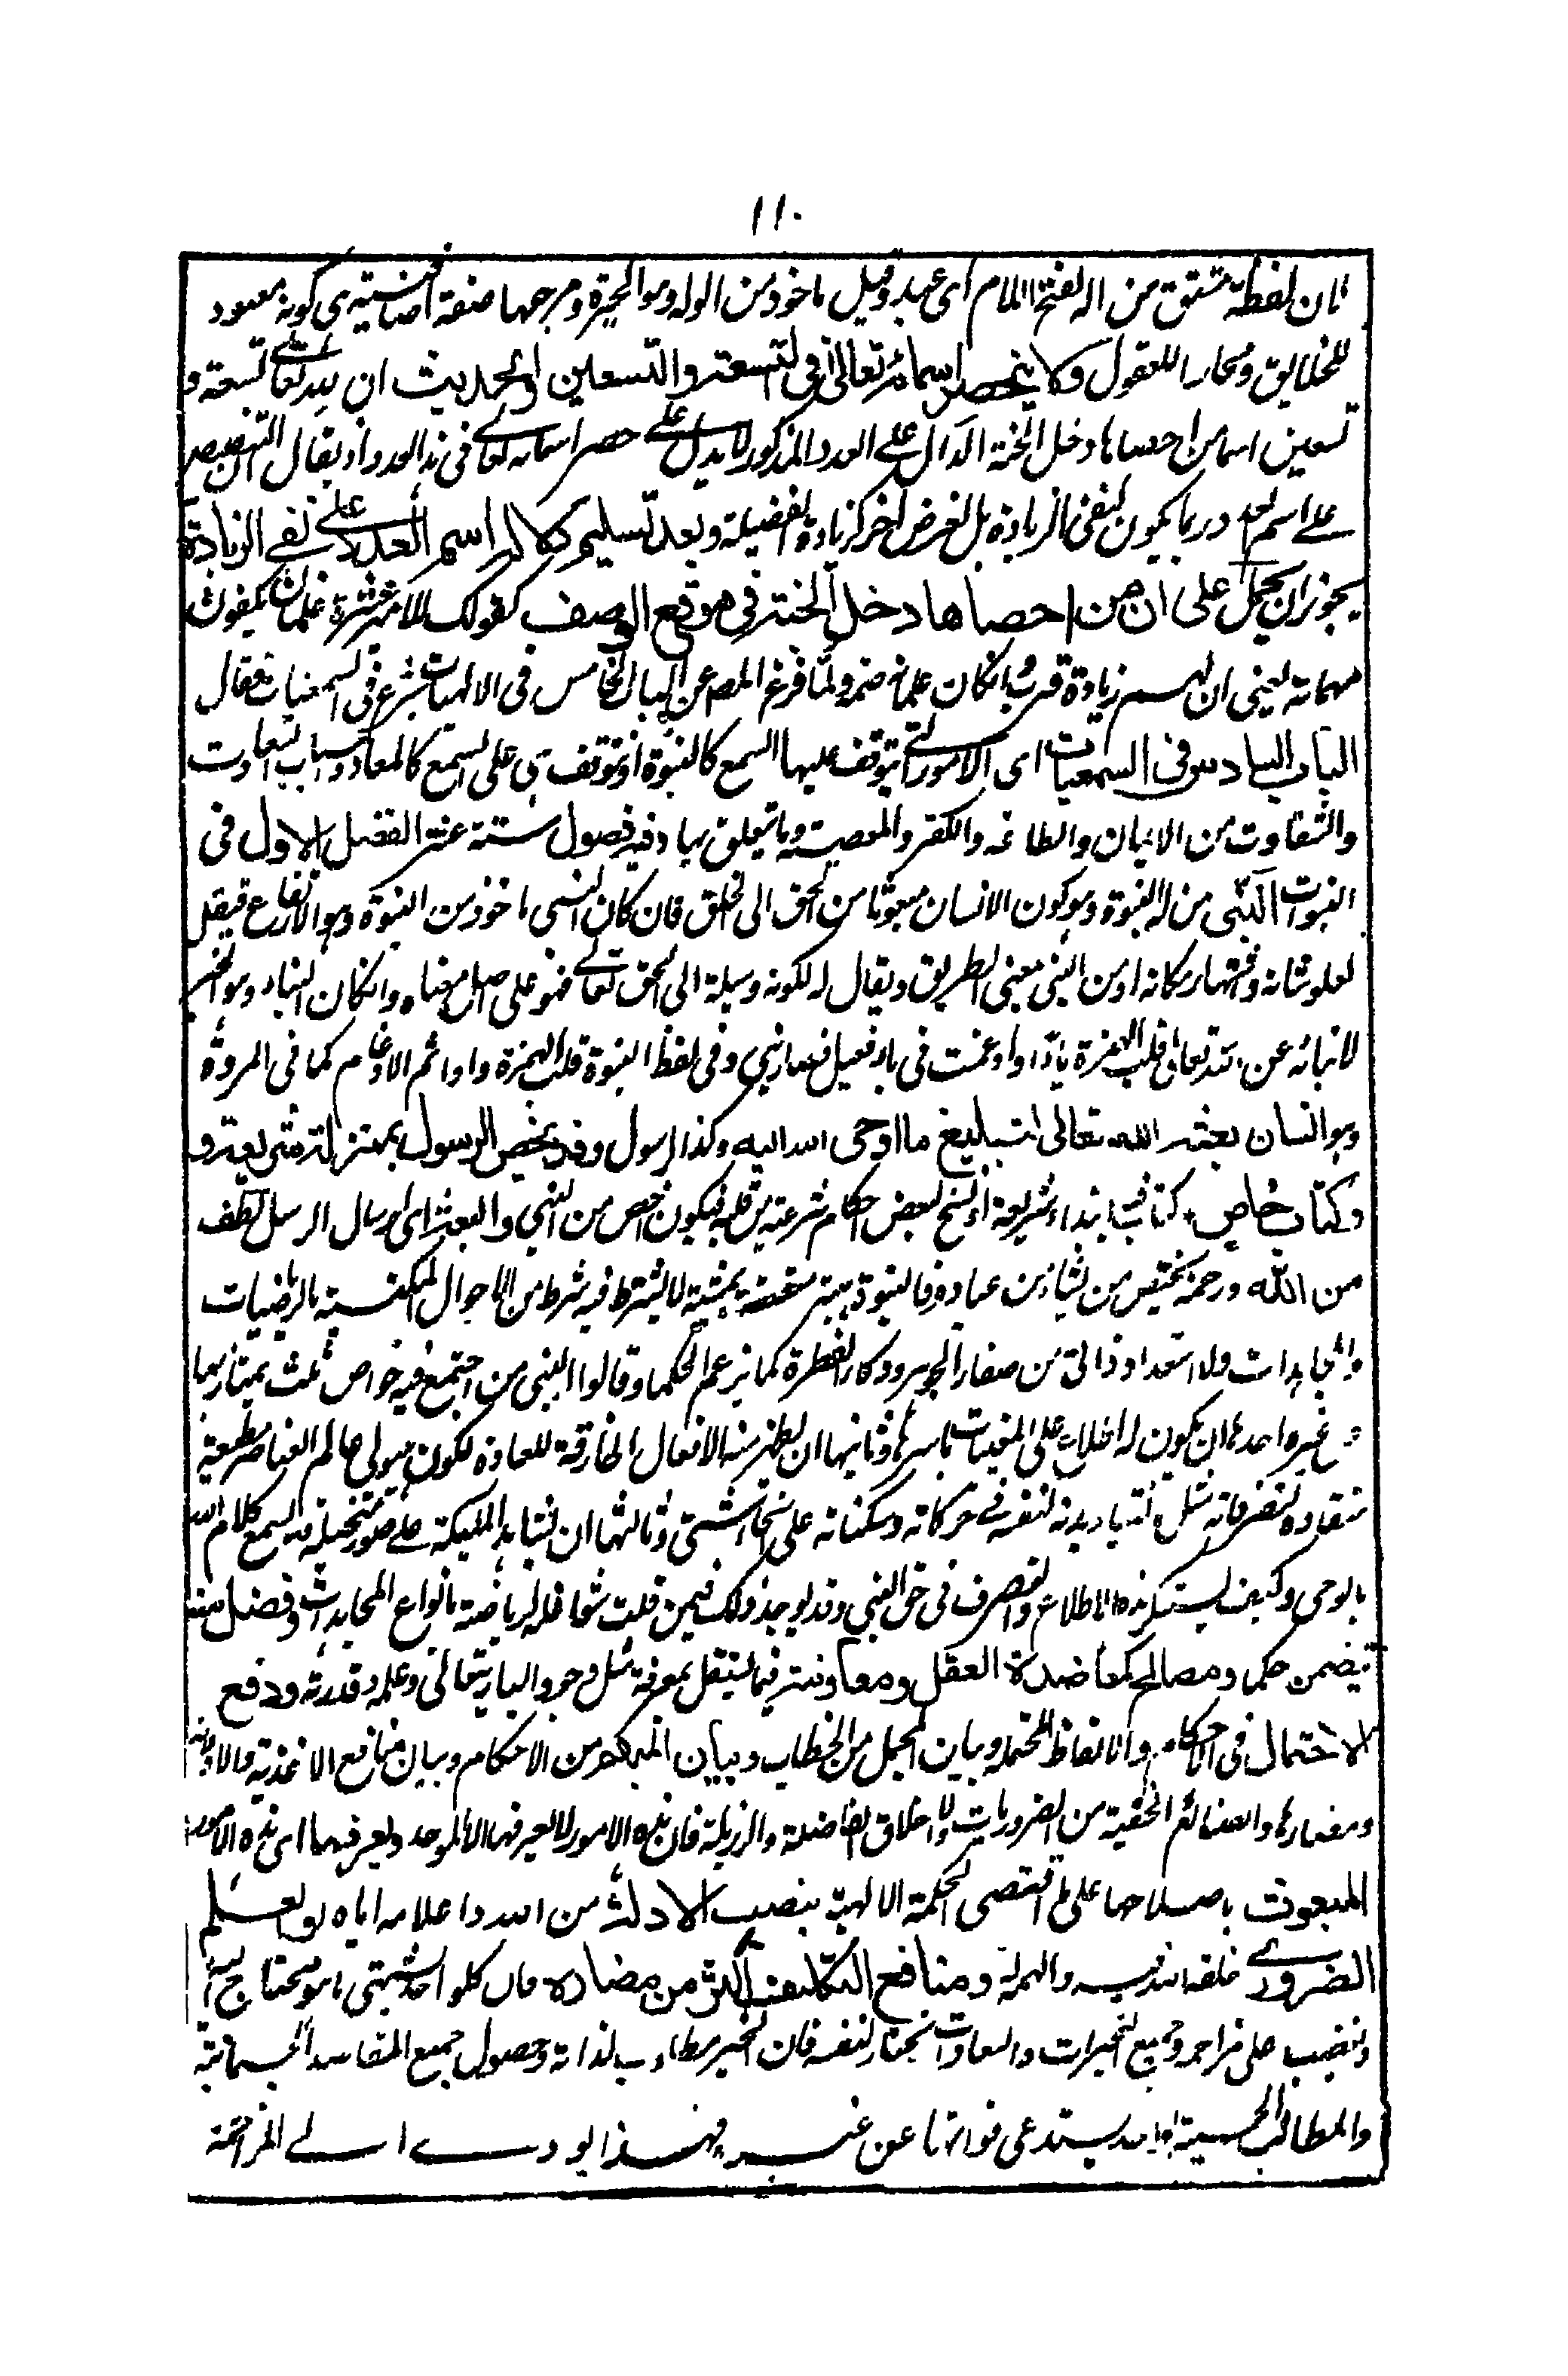 ١١٠
بان لفظه مشتق من اله بفتح اللام اى عبد وقيل ماخوذ من الوله وهو الحيرة ومرجهما صفة اضافية هى كونه معبود
للخلايق ومحارا للعقول ولا ينحصر اسمائه تعالى فى التسعة والتسعين والحديث ان لله تعالى تسعة و
تسعين اسما من احصاها دخل الجنة الدال على العدد المذكور لا يدل على حصر اسمائه تعالى فى هذا العدد اذ يقال التنصيص
على اسم العدد ربما يكون لا لنفى الزيادة بل لغرض آخر كزيادة الفضيلة وبعد تسليم دلالة اسم العدد على نفى الزيادة
يجوز ان يحمل على ان من احصاها دخل الجنة فى موقع الوصف كقولك للامير عشرة غلمان يكفون
مهماته يعنى ان لهم زيادة قرب وان كان غلمانه ضم ولما فرغ المصـ عن الباب الخامس فى الالهيات شرع فى السمعيات فقال
الباب السادس فى السمعيات اى الامور التى يتوقف عليها السمع كالنبوة او تتوقف هى على السمع كالمعاد واسباب السعادت
والشقاوت من الايمان والطاعة والكفر والمعصية وما يتعلق بها وفيه فصول ستة عشر الفصل الاول فى
النبوات النبى من له النبوة وهو كون الانسان مبعوثا من الحق الى الخلق فان كان النبى ماخوذ من النبوة وهو الارتفاع فيقل
لعلو شانه واشتهار مكانه او من النبى بمعنى الطريق ويقال له لكونه وسيلة الى الحق تعالى فهو على اصل معناه وان كان النباء وهو الخبر
لانبائه عن الله تعالى فقلب الهمزة ياء او واوا وادغمت فى ياء فعيل فصار نبى وفى لفظ النبوة قلب الهمزة واوا ثم الادغام كما فى المروة
وهو انسان بعثه الله تعالى لتبليغ ما اوحى الله اليه وكذا الرسول وقد يخص الرسول بمن نزل له شريعة و
وكتاب خاص كتاب ابتداء شريعة او نسخ لبعض احكام شرعية من قبله فيكون اخص من النبى والبعثة اى ارسال الرسل لطف
من الله ورحمة يختص من يشاء من عباده فالنبوة موهبة متعلقة بمشيته لا يشترط فيه شرط من الاحوال المكتسبة بالرياضيات
والمجاهدات ولا استعداد ذاتى من صفاء الجوهر وذكاء الفطرة كما يزعم الحكما وقالوا النبى من اجتمع فيه خواص ثلث يمتاز بها
عن غيره احدها ان يكون له اطلاع على المغيبات باسرها وثانيها ان يظهر منه الافعال الخارقة للعادة لكون هيولى عالم العناصر مطيعة
منقادة لتصرفاته مثل انقياد بدنه لنفسه فى حركاته وسكناته على انحاء شتى وثالثها ان يشاهد الملائكة على صور متخيلة ويسمع كلام الله
بالوحى وكيف يستنكر هذه الاطلاع والتصرف فى حق النبى وقد يوجد ذلك فيمن قلت شواغله لرياضة بانواع المجاهدات وفضل بعثته
تتضمن حكما ومصالح كمعاضدة العقل ومعاونته فيما يستقل بمعرفة مثل وجود البارى تعالى وعلمه وقدرته ودفع
الاحتمال فى الاحكام والالفاظ المحتملة وبيان المجمل من الخطاب وبيان المبهم من الاحكام وبيان منافع الاغذية والادوية
ومضارها والصنائع الخفية من الضروريات والاخلاق الفاضلة والرزيلة فان هذه الامور لا يعرفها الا الموحد ويعرفها اى هذه الامور
المبعوث باصلاحها على ما اقتضى الحكمة الالهية بنصب الادلة من الله واعلامه اياه بوالعلم
الضرورى خلقه الله فيه والهمه ومنافع التكليف اكثر من مضاره فان كل واحد يشتهى ما هو محتاج اليه
ويغضب على مزاحمه وجميع الخيرات والسعادات يختار لنفسه فان الخير مطلوب لذاته وحصول جميع المقاسد الجسمانية
والمطالب الحسية لواحد يستدعى فواتها عن غيره فهذا يودى الى المزاحمة